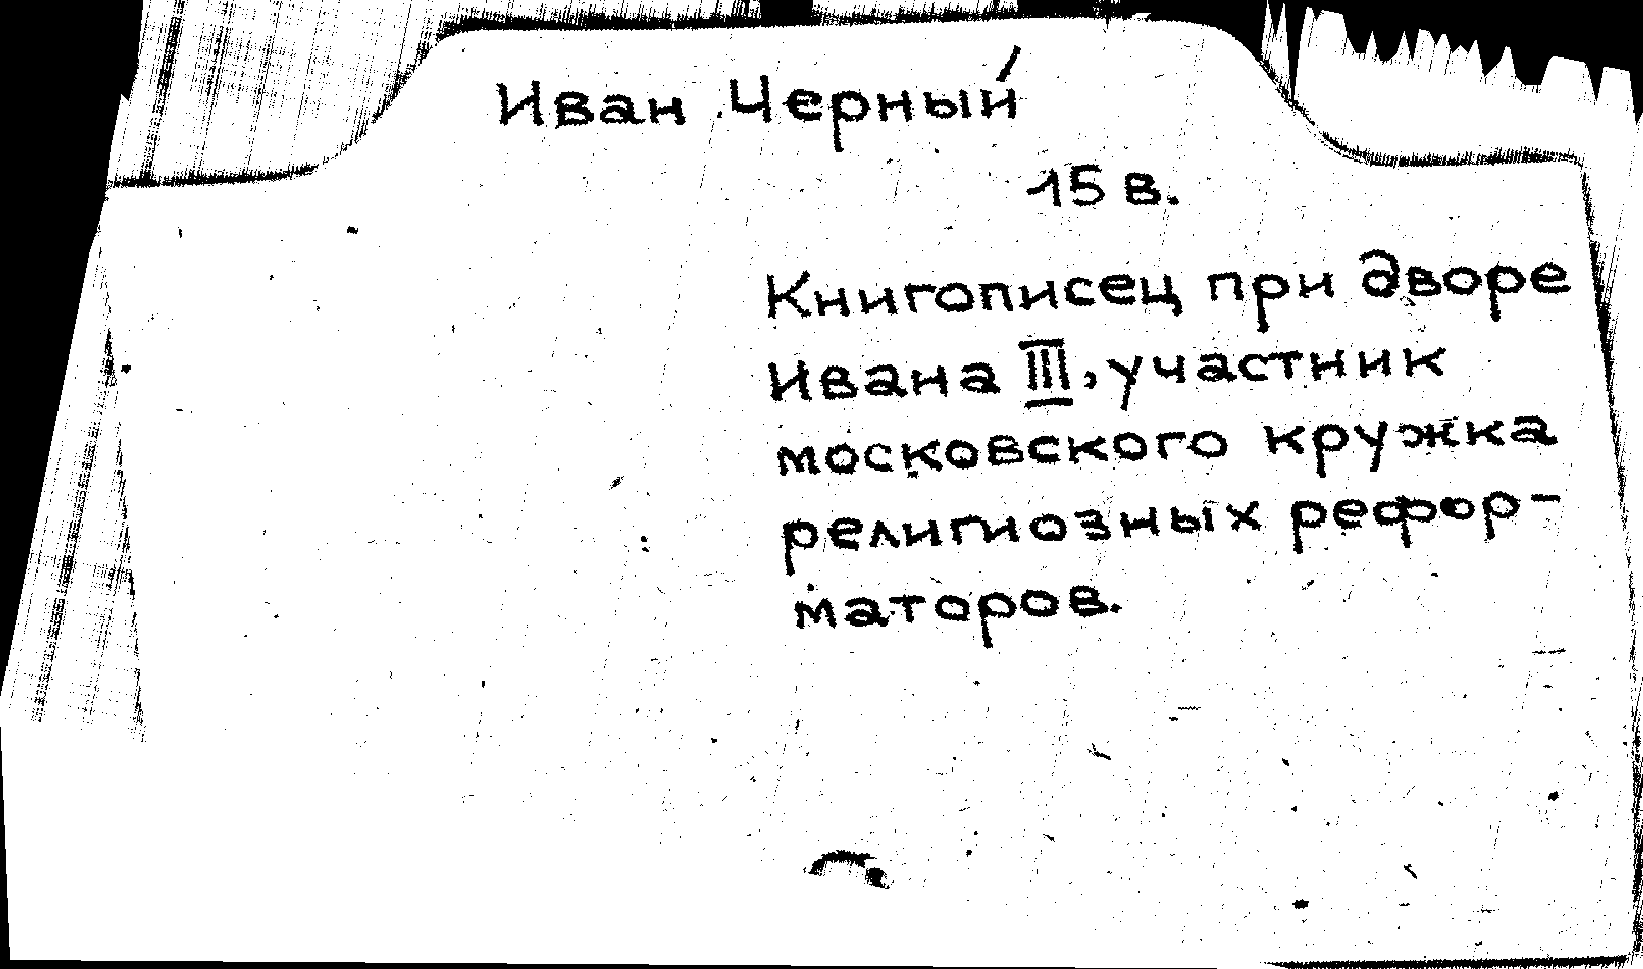 Иван Черный
15 в.
Книгописец при дворе
Ивана III, участник
московского кружка
религиозных рефор-
маторов.